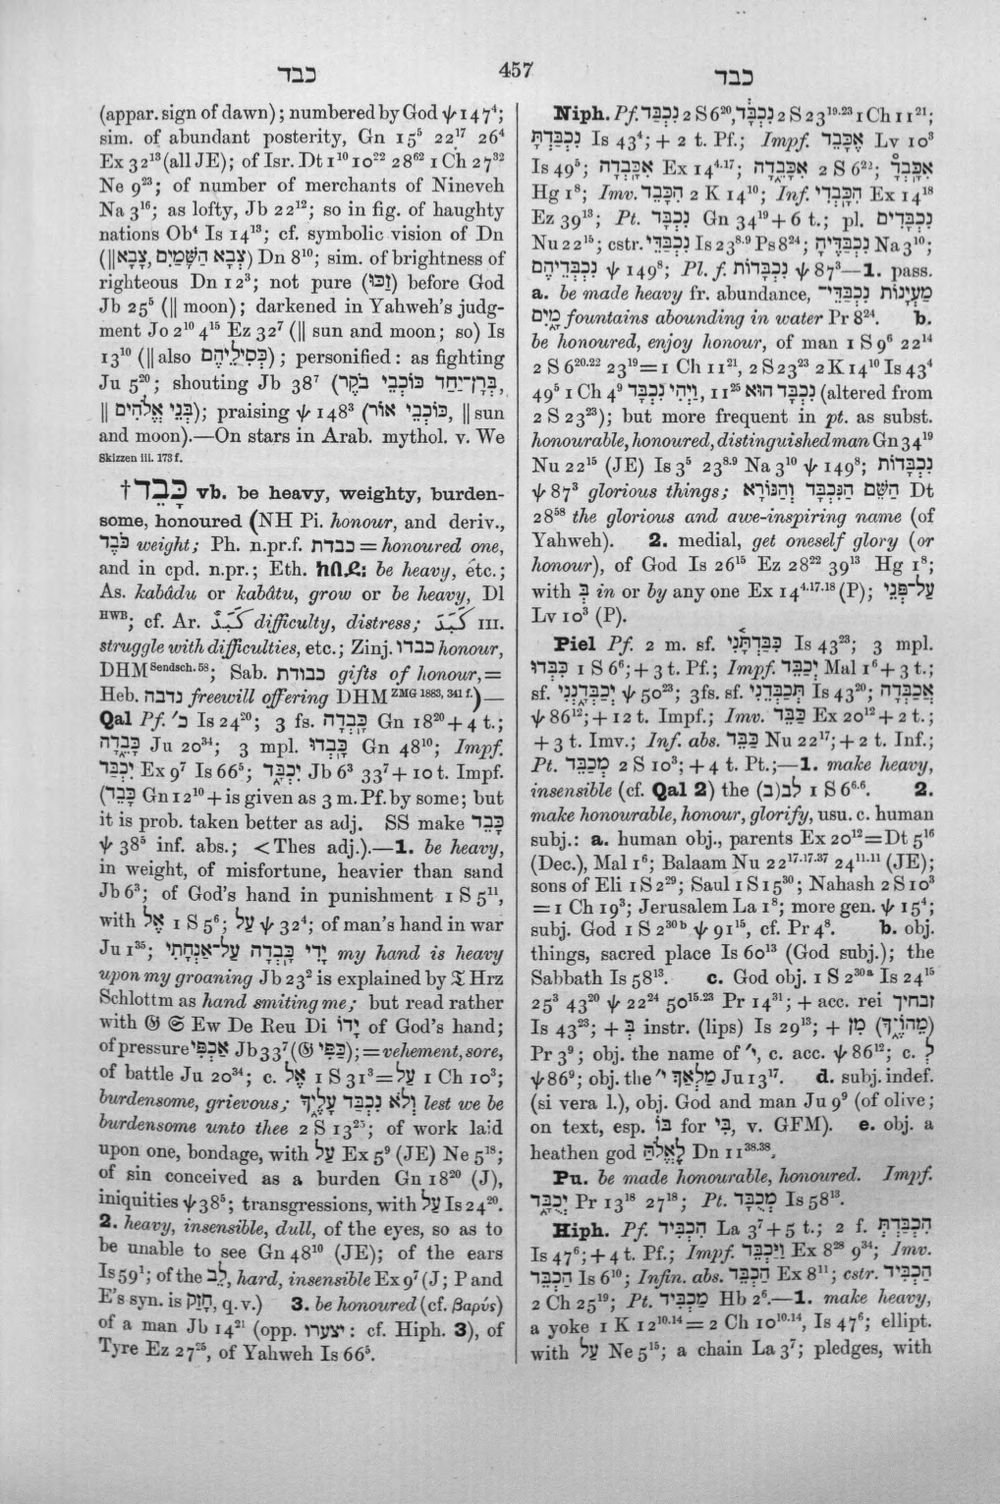 כבד
457
כבד
(appar. sign of dawn); numbered by God ψ 147⁴;
sim. of abundant posterity, Gn 15⁵ 22¹⁷ 26⁴
Ex 32¹³ (all JE); of Isr. Dt 1¹⁰ 10²² 28⁶² 1 Ch 27³²
Ne 9²³; of number of merchants of Nineveh
Na 3¹⁶; as lofty, Jb 22¹²; so in fig. of haughty
nations Ob⁴ Is 14¹³; cf. symbolic vision of Dn
(‖צָבָא, צְבָא הַשָּׁמַיִם) Dn 8¹⁰; sim. of brightness of
righteous Dn 12³; not pure (זַכּוּ) before God
Jb 25⁵ (‖ moon); darkened in Yahweh's judg-
ment Jo 2¹⁰ 4¹⁵ Ez 32⁷ (‖ sun and moon; so) Is
13¹⁰ (‖ also כְּסִילֵיהֶם); personified: as fighting
Ju 5²⁰; shouting Jb 38⁷ (בְּרָן־יַחַד כּוֹכְבֵי בֹקֶר,
‖ בְּנֵי אֱלֹהִים); praising ψ 148³ (כּוֹכְבֵי אוֹר, ‖ sun
and moon).—On stars in Arab. mythol. v. We
Skizzen iii. 173 f.
†כָּבֵד vb. be heavy, weighty, burden-
some, honoured (NH Pi. honour, and deriv.,
כֹּבֶד weight; Ph. n.pr.f. כבדת = honoured one,
and in cpd. n.pr.; Eth. ከብደ: be heavy, etc.;
As. kabâdu or kabâtu, grow or be heavy, Dl
HWB; cf. Ar. كَبَدٌ difficulty, distress; كَبَدَ III.
struggle with difficulties, etc.; Zinj. כבדו honour,
DHM Sendsch. 58; Sab. כבודת gifts of honour, =
Heb. נדבה freewill offering DHM ZMG 1883, 341 f.)—
Qal Pf. כ׳ Is 24²⁰; 3 fs. כָּבְדָה Gn 18²⁰ + 4 t.;
כָּבֵדָה Ju 20³⁴; 3 mpl. כָּבְדוּ Gn 48¹⁰; Impf.
יִכְבַּד Ex 9⁷ Is 66⁵; יִכְבָּד Jb 6³ 33⁷ + 10 t. Impf.
(כָּבֵד Gn 12¹⁰ + is given as 3 m. Pf. by some; but
it is prob. taken better as adj. SS make כָּבֵד
ψ 38⁵ inf. abs.; < Thes adj.).—1. be heavy,
in weight, of misfortune, heavier than sand
Jb 6³; of God's hand in punishment 1 S 5¹¹,
with אֶל 1 S 5⁶; עַל ψ 32⁴; of man's hand in war
Ju 1³⁵; יָדִי כָּבְדָה עַל־אַנְחָתִי my hand is heavy
upon my groaning Jb 23² is explained by 𝔗 Hrz
Schlottm as hand smiting me; but read rather
with 𝔊 𝔖 Ew De Reu Di יָדוֹ of God's hand;
of pressure אַכְפִּי Jb 33⁷ (𝔊 כַּפִּי); = vehement, sore,
of battle Ju 20³⁴; c. אֶל 1 S 31³ = עַל 1 Ch 10³;
burdensome, grievous; וְלֹא נִכְבַּד עָלֶיךָ lest we be
burdensome unto thee 2 S 13²⁵; of work laid
upon one, bondage, with עַל Ex 5⁹ (JE) Ne 5¹⁸;
of sin conceived as a burden Gn 18²⁰ (J),
iniquities ψ 38⁵; transgressions, with עַל Is 24²⁰.
2. heavy, insensible, dull, of the eyes, so as to
be unable to see Gn 48¹⁰ (JE); of the ears
Is 59¹; of the לֵב, hard, insensible Ex 9⁷ (J; P and
E's syn. is חָזַק, q.v.) 3. be honoured (cf. βαρύς)
of a man Jb 14²¹ (opp. יצערו: cf. Hiph. 3), of
Tyre Ez 27²⁵, of Yahweh Is 66⁵.
Niph. Pf. נִכְבַּד 2 S 6²⁰, נִכְבָּד 2 S 23¹⁹·²³ 1 Ch 11²¹;
נִכְבַּדְתָּ Is 43⁴; + 2 t. Pf.; Impf. אֶכָּבֵד Lv 10³
Is 49⁵; אִכָּבְדָה Ex 14⁴·¹⁷; אִכָּבֵדָה 2 S 6²²; אִכָּבְדָ
Hg 1⁸; Imv. הִכָּבֵד 2 K 14¹⁰; Inf. הִכָּבְדִי Ex 14¹⁸
Ez 39¹³; Pt. נִכְבָּד Gn 34¹⁹ + 6 t.; pl. נִכְבָּדִים
Nu 22¹⁵; cstr. נִכְבַּדֵּי Is 23⁸·⁹ Ps 8²⁴; נִכְבַּדֶּיהָ Na 3¹⁰;
נִכְבְּדֵיהֶם ψ 149⁸; Pl. f. נִכְבָּדוֹת ψ 87³—1. pass.
a. be made heavy fr. abundance, מַעְיָנוֹת נִכְבַּדֵּי־
מָיִם fountains abounding in water Pr 8²⁴. b.
be honoured, enjoy honour, of man 1 S 9⁶ 22¹⁴
2 S 6²⁰·²² 23¹⁹ = 1 Ch 11²¹, 2 S 23²³ 2 K 14¹⁰ Is 43⁴
49⁵ 1 Ch 4⁹ וַיְהִי נִכְבָּד, 11²⁵ נִכְבָּד הוּא (altered from
2 S 23²³); but more frequent in pt. as subst.
honourable, honoured, distinguished man Gn 34¹⁹
Nu 22¹⁵ (JE) Is 3⁵ 23⁸·⁹ Na 3¹⁰ ψ 149⁸; נִכְבָּדוֹת
ψ 87³ glorious things; הַשֵּׁם הַנִּכְבָּד וְהַנּוֹרָא Dt
28⁵⁸ the glorious and awe-inspiring name (of
Yahweh). 2. medial, get oneself glory (or
honour), of God Is 26¹⁵ Ez 28²² 39¹³ Hg 1⁸;
with בְּ in or by any one Ex 14⁴·¹⁷·¹⁸ (P); עַל־פְּנֵי
Lv 10³ (P).
Piel Pf. 2 m. sf. כִּבַּדְתָּנִי Is 43²³; 3 mpl.
כִּבְּדוּ 1 S 6⁶; + 3 t. Pf.; Impf. יְכַבֵּד Mal 1⁶ + 3 t.;
sf. יְכַבְּדָנְנִי ψ 50²³; 3 fs. sf. תְּכַבְּדֵנִי Is 43²⁰; אֲכַבְּדָה
ψ 86¹²; + 12 t. Impf.; Imv. כַּבֵּד Ex 20¹² + 2 t.;
+ 3 t. Imv.; Inf. abs. כַּבֵּד Nu 22¹⁷; + 2 t. Inf.;
Pt. מְכַבֵּד 2 S 10³; + 4 t. Pt.;—1. make heavy,
insensible (cf. Qal 2) the לב(ב) 1 S 6⁶·⁶. 2.
make honourable, honour, glorify, usu. c. human
subj.: a. human obj., parents Ex 20¹² = Dt 5¹⁶
(Dec.), Mal 1⁶; Balaam Nu 22¹⁷·¹⁷·³⁷ 24¹¹·¹¹ (JE);
sons of Eli 1 S 2²⁹; Saul 1 S 15³⁰; Nahash 2 S 10³
= 1 Ch 19³; Jerusalem La 1⁸; more gen. ψ 15⁴;
subj. God 1 S 2³⁰ᵇ ψ 91¹⁵, cf. Pr 4⁸. b. obj.
things, sacred place Is 60¹³ (God subj.); the
Sabbath Is 58¹³. c. God obj. 1 S 2³⁰ᵃ Is 24¹⁵
25³ 43²⁰ ψ 22²⁴ 50¹⁵·²³ Pr 14³¹; + acc. rei זבחיך
Is 43²³; + בְּ instr. (lips) Is 29¹³; + מִן (מֵהוֹנֶךָ)
Pr 3⁹; obj. the name of י׳, c. acc. ψ 86¹²; c. לְ
ψ 86⁹; obj. the מַלְאַךְ י׳ Ju 13¹⁷. d. subj. indef.
(si vera l.), obj. God and man Ju 9⁹ (of olive;
on text, esp. בּוֹ for בִּי, v. GFM). e. obj. a
heathen god לֶאֱלֹהַּ Dn 11³⁸·³⁸.
Pu. be made honourable, honoured. Impf.
יְכֻבָּד Pr 13¹⁸ 27¹⁸; Pt. מְכֻבָּד Is 58¹³.
Hiph. Pf. הִכְבִּיד La 3⁷ + 5 t.; 2 f. הִכְבַּדְתְּ
Is 47⁶; + 4 t. Pf.; Impf. וַיַּכְבֵּד Ex 8²⁸ 9³⁴; Imv.
הַכְבֵּד Is 6¹⁰; Infin. abs. הַכְבֵּד Ex 8¹¹; cstr. הַכְבִּיד
2 Ch 25¹⁹; Pt. מַכְבִּיד Hb 2⁶.—1. make heavy,
a yoke 1 K 12¹⁰·¹⁴ = 2 Ch 10¹⁰·¹⁴, Is 47⁶; ellipt.
with עַל Ne 5¹⁵; a chain La 3⁷; pledges, with